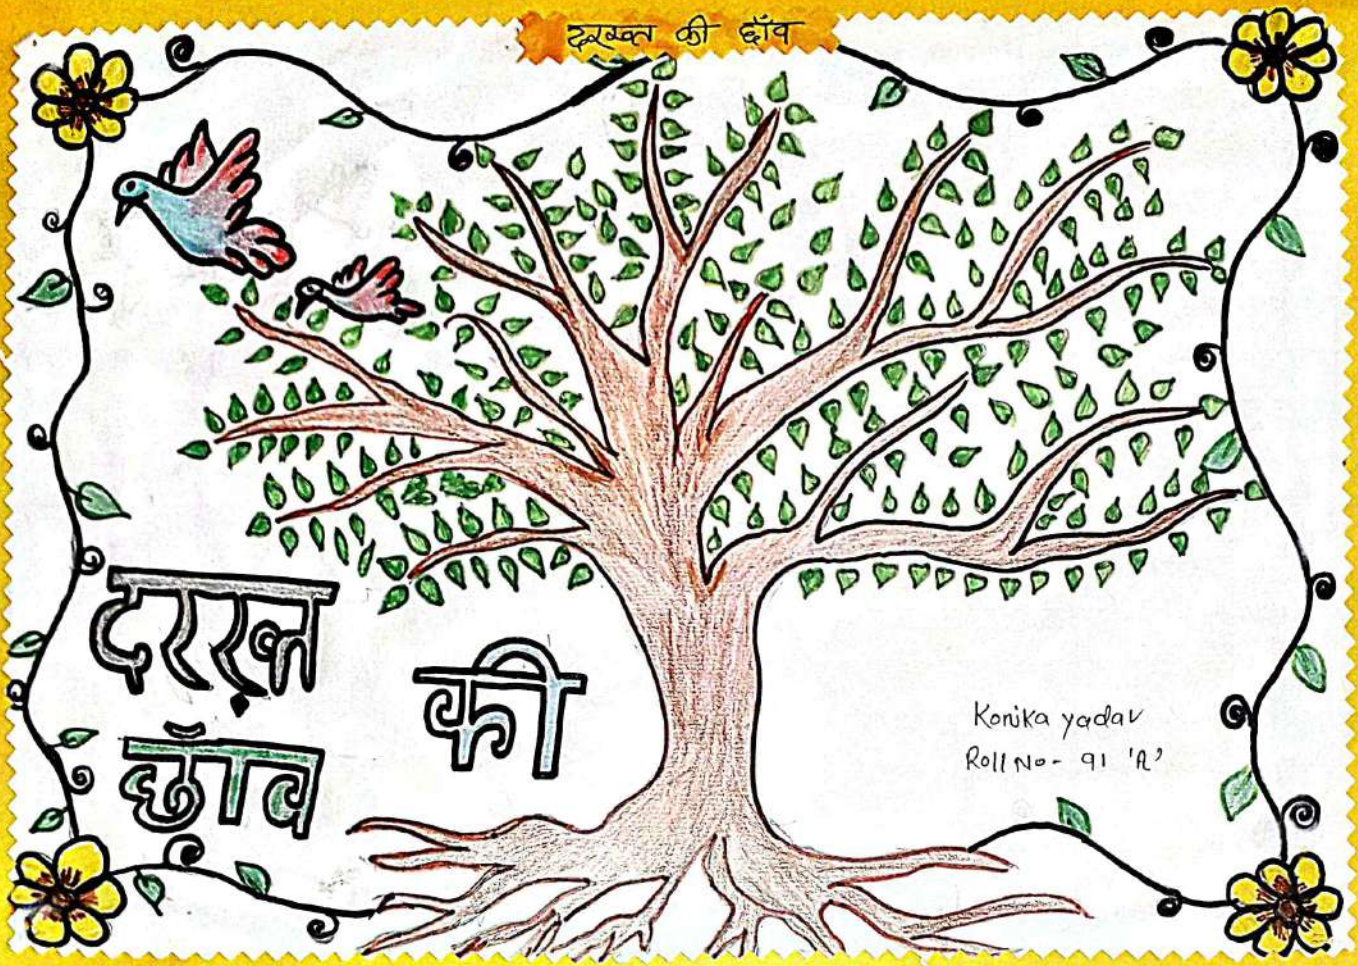 दरख्त की छाँव
दरख़्त
की
छाँव
Konika yadav
Roll No- 91 'A'